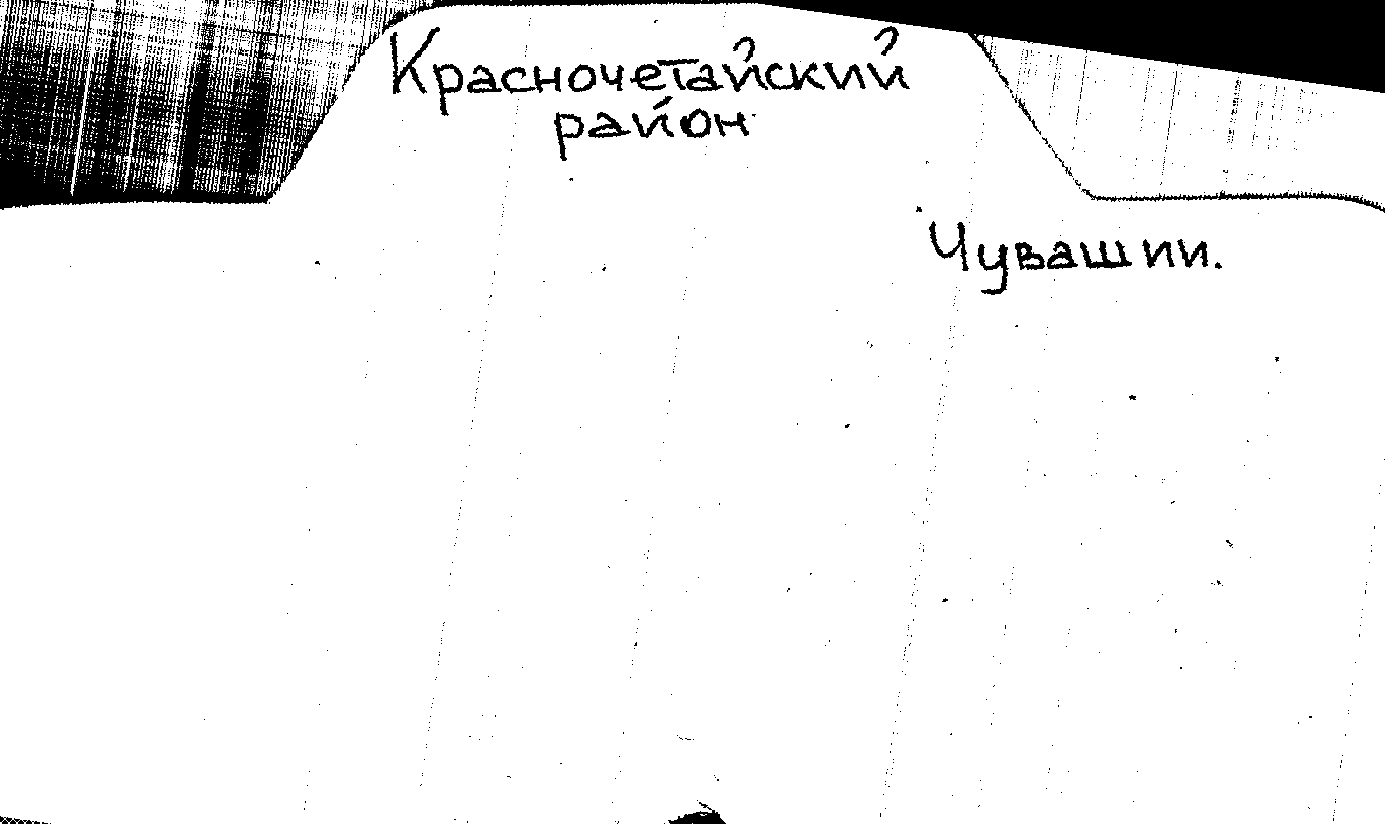 Красночетайский
район
Чувашии.